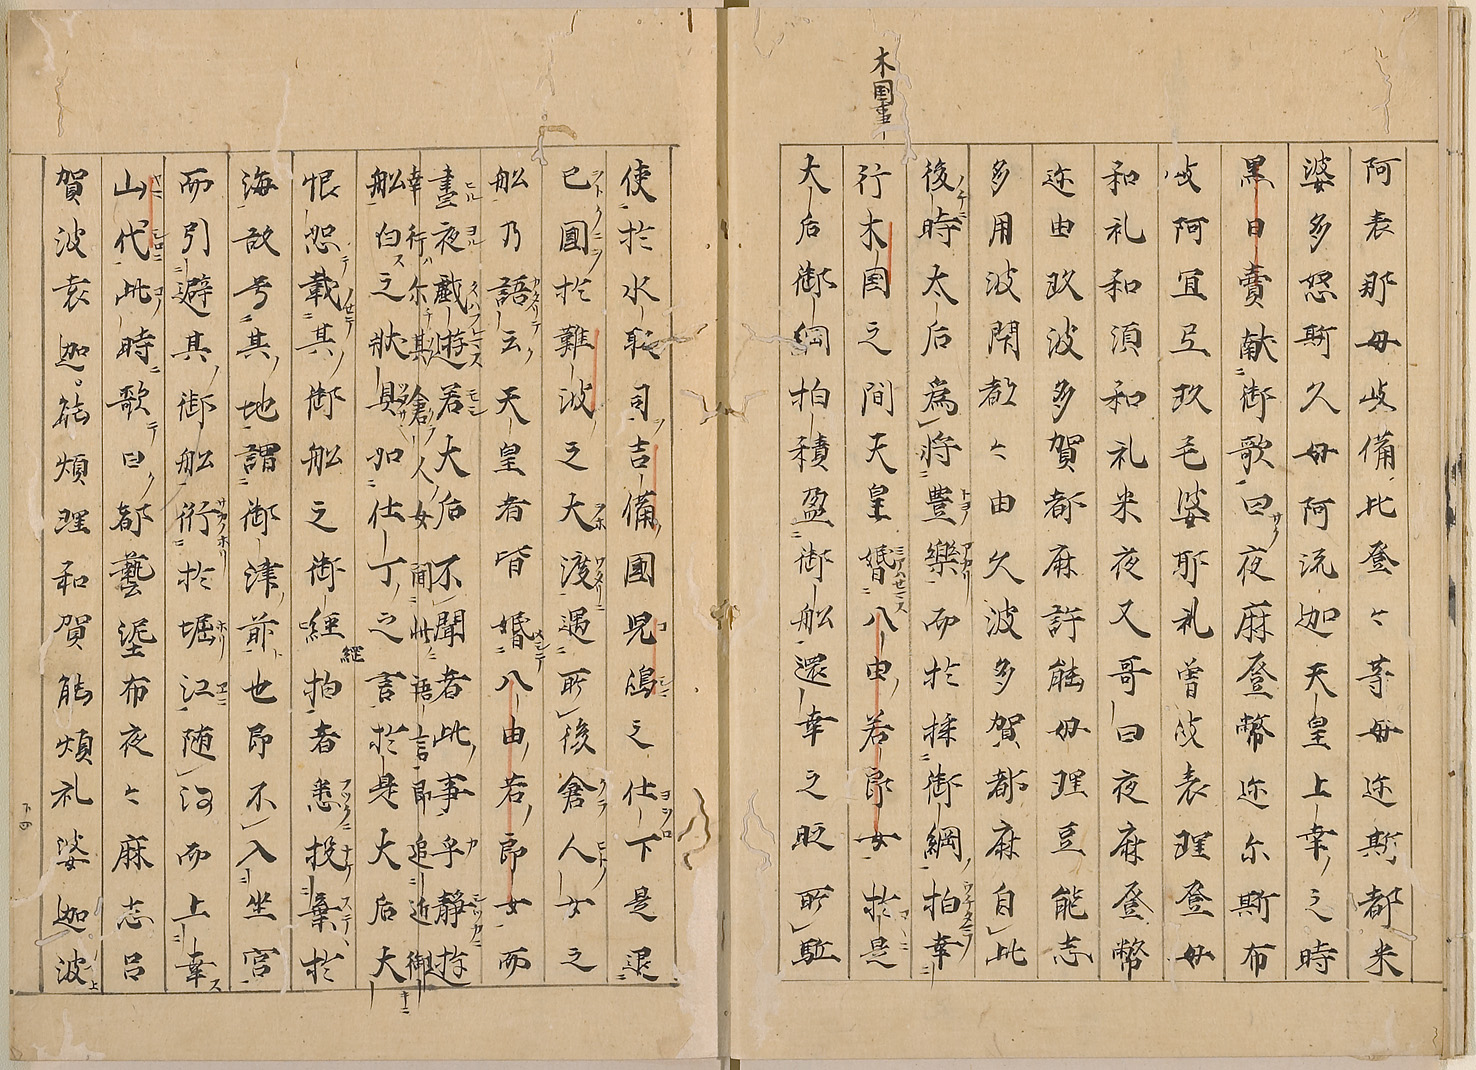 木国事
阿表那母岐備比登々等母迩斯都米
婆多怒斯久母阿流迦天皇上幸之時
黒日賣献御歌曰夜麻登幣迩尓斯布
岐阿冝弖玖毛婆耶礼曽岐表理登母
和礼和須和礼米夜又哥曰夜麻登幣
迩由玖波多賀都麻許能母理豆能志
多用波閇都々由久波多賀都麻自此
後時大后為将豊樂而於採御綱柏幸
行木国之間天皇婚八由若郎女於是
大后御綱柏積盈御舩還幸之時所駈
使於水取司吉備國児嶋之仕下是退
己國於難波之大渡遇所後倉人女之
舩乃語云天皇者皆婚八由若郎女而
晝夜戯遊若大后不聞者此事乎静遊
幸行尓其倉人女聞此語言即追近御
舩白之狀具如仕丁之言於是大后大
恨怨載其御舩之御經拍者悉投棄於
海故号其地謂御津前也即不入坐宮
而引避其御舩泝於堀江随河而上幸
山代此時歌曰都藝泥布夜々麻志呂
賀波袁迦能煩理和賀能煩礼婆迦波